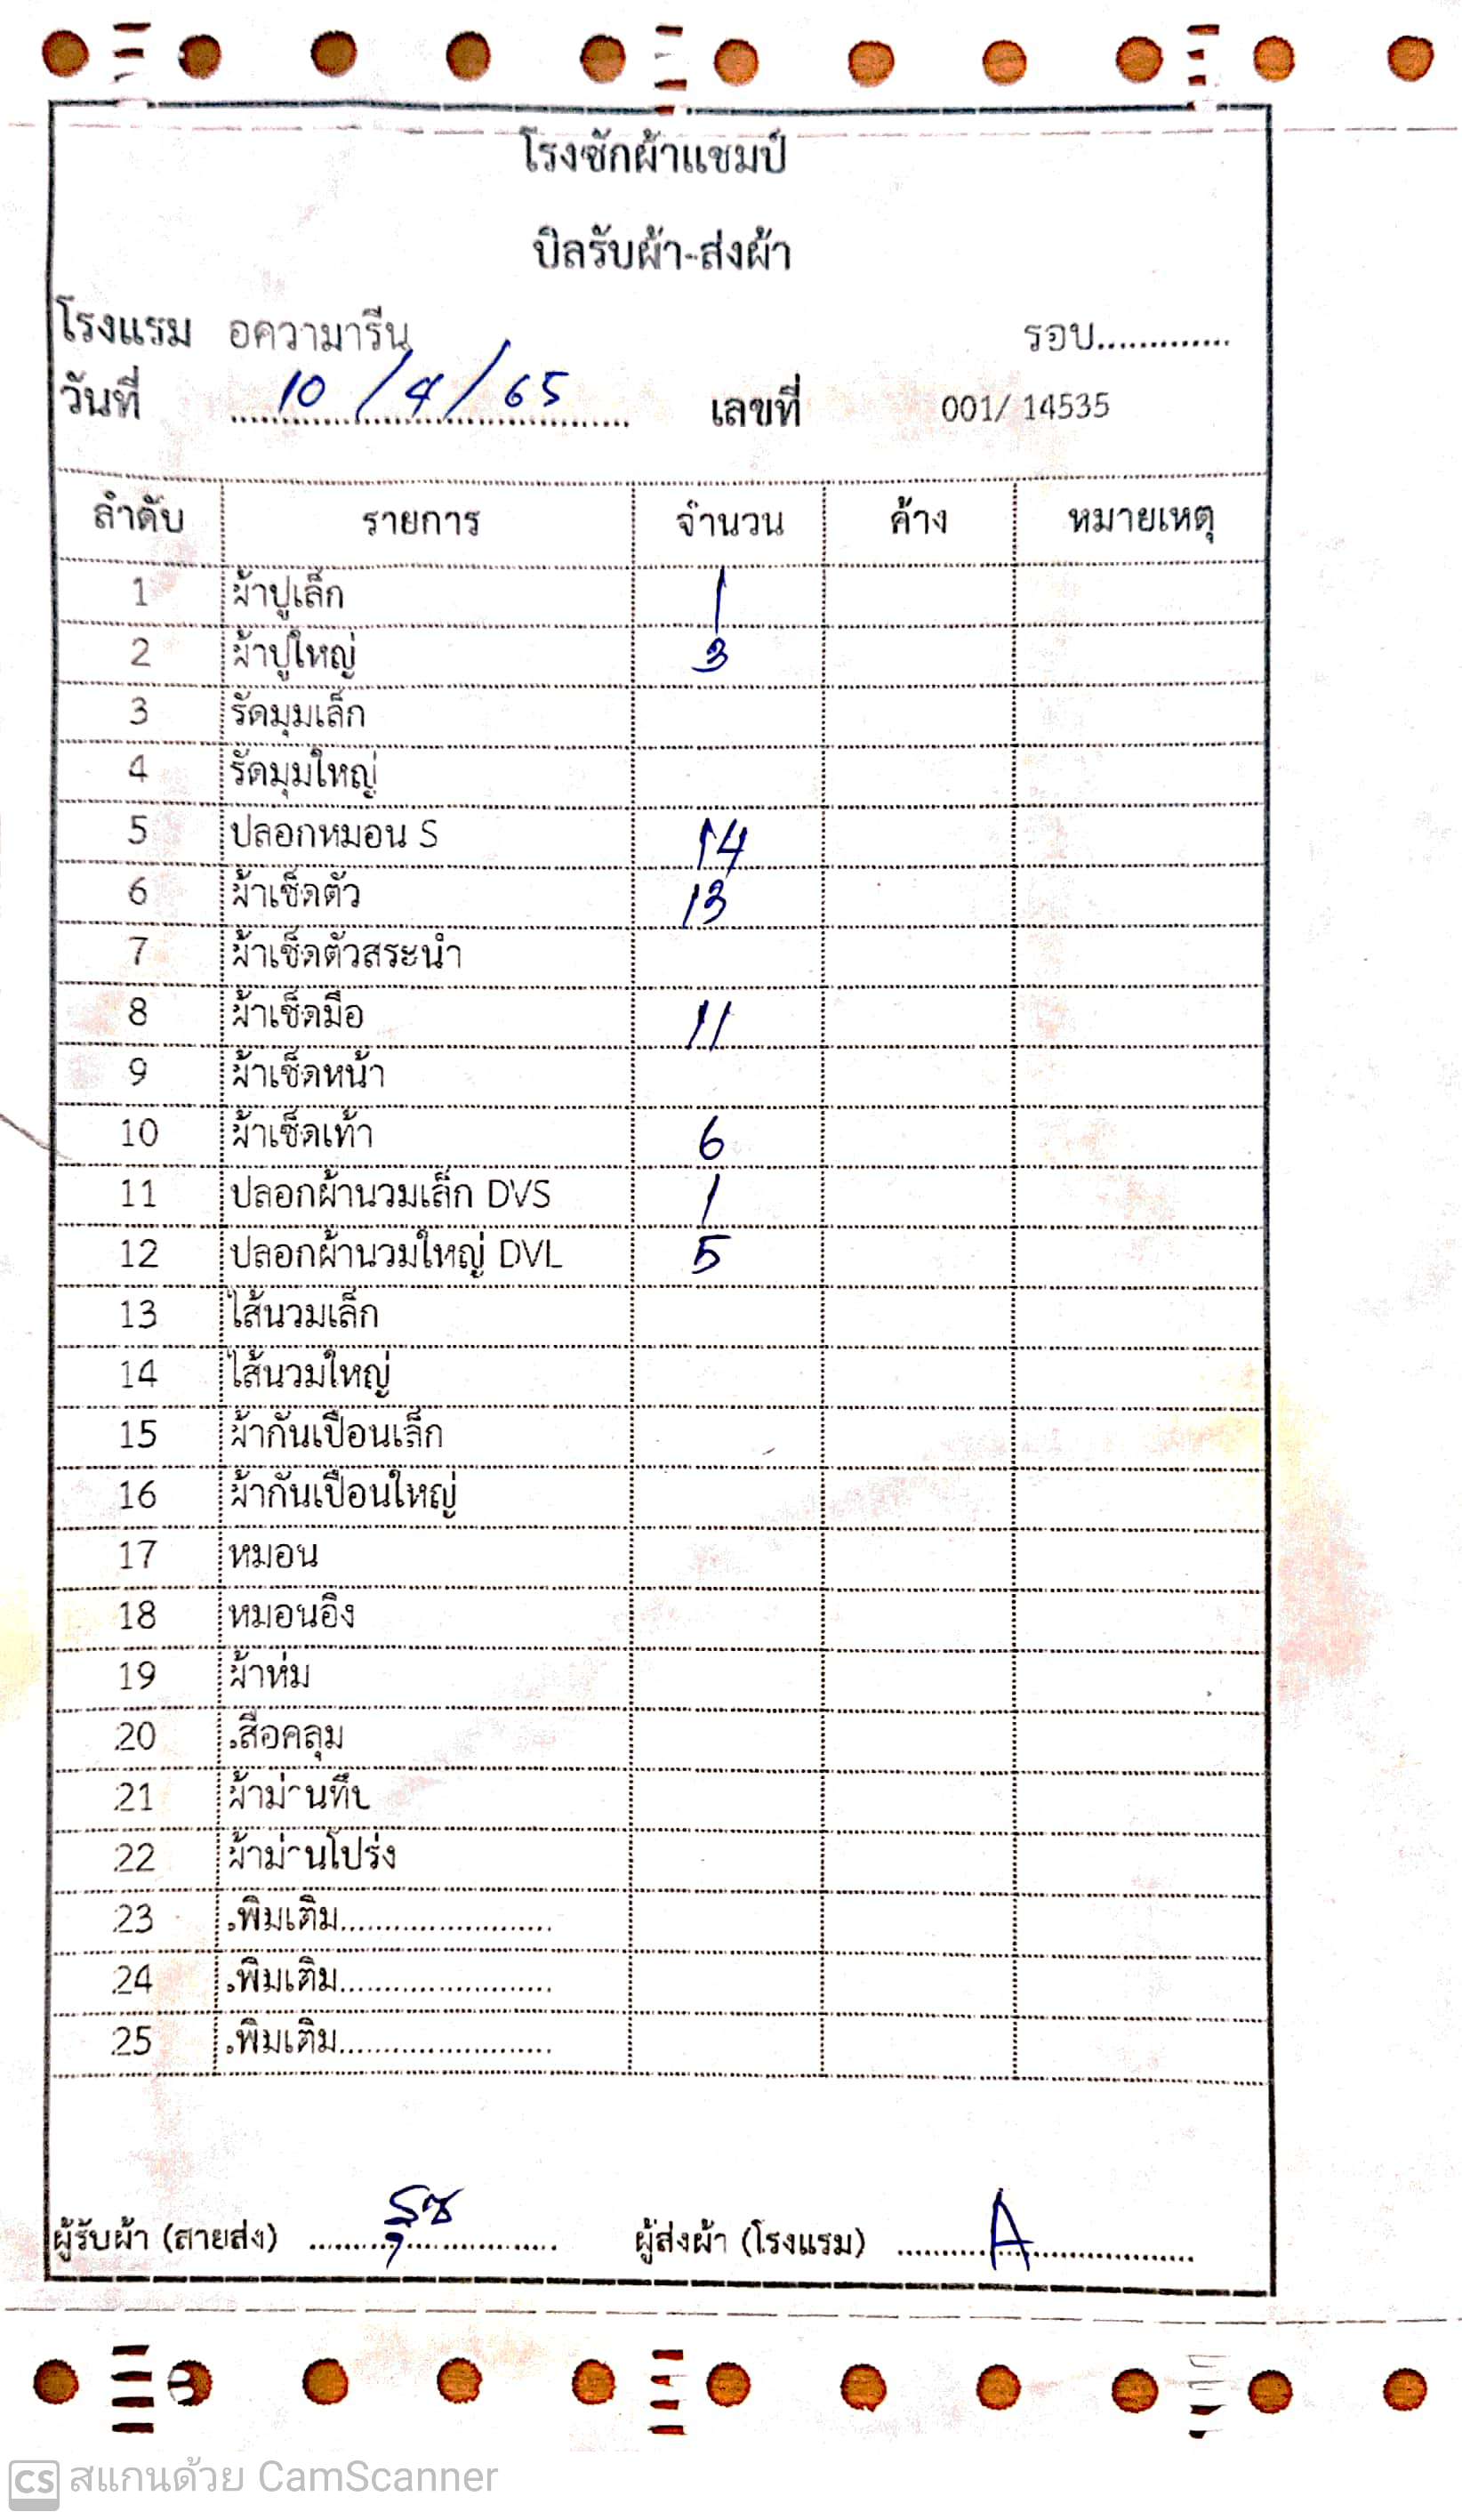 โรงซักผ้าแชมป์
บิลรับผ้า-ส่งผ้า
โรงแรม อความารีน รอบ.............
วันที่ 10/4/65 เลขที่ 001/ 14535
ลำดับ รายการ จำนวน ค้าง หมายเหตุ
1 ผ้าปูเล็ก 1
2 ผ้าปูใหญ่ 3
3 รัดมุมเล็ก
4 รัดมุมใหญ่
5 ปลอกหมอน S 14
6 ผ้าเช็ดตัว 13
7 ผ้าเช็ดตัวสระน้ำ
8 ผ้าเช็ดมือ 11
9 ผ้าเช็ดหน้า
10 ผ้าเช็ดเท้า 6
11 ปลอกผ้านวมเล็ก DVS 1
12 ปลอกผ้านวมใหญ่ DVL 5
13 ไส้นวมเล็ก
14 ไส้นวมใหญ่
15 ผ้ากันเปื้อนเล็ก
16 ผ้ากันเปื้อนใหญ่
17 หมอน
18 หมอนอิง
19 ผ้าห่ม
20 เสื้อคลุม
21 ผ้าม่านทึบ
22 ผ้าม่านโปร่ง
23 เพิ่มเติม........................
24 เพิ่มเติม........................
25 เพิ่มเติม........................
ผู้รับผ้า (สายส่ง) ............................ ผู้ส่งผ้า (โรงแรม) A
CS สแกนด้วย CamScanner